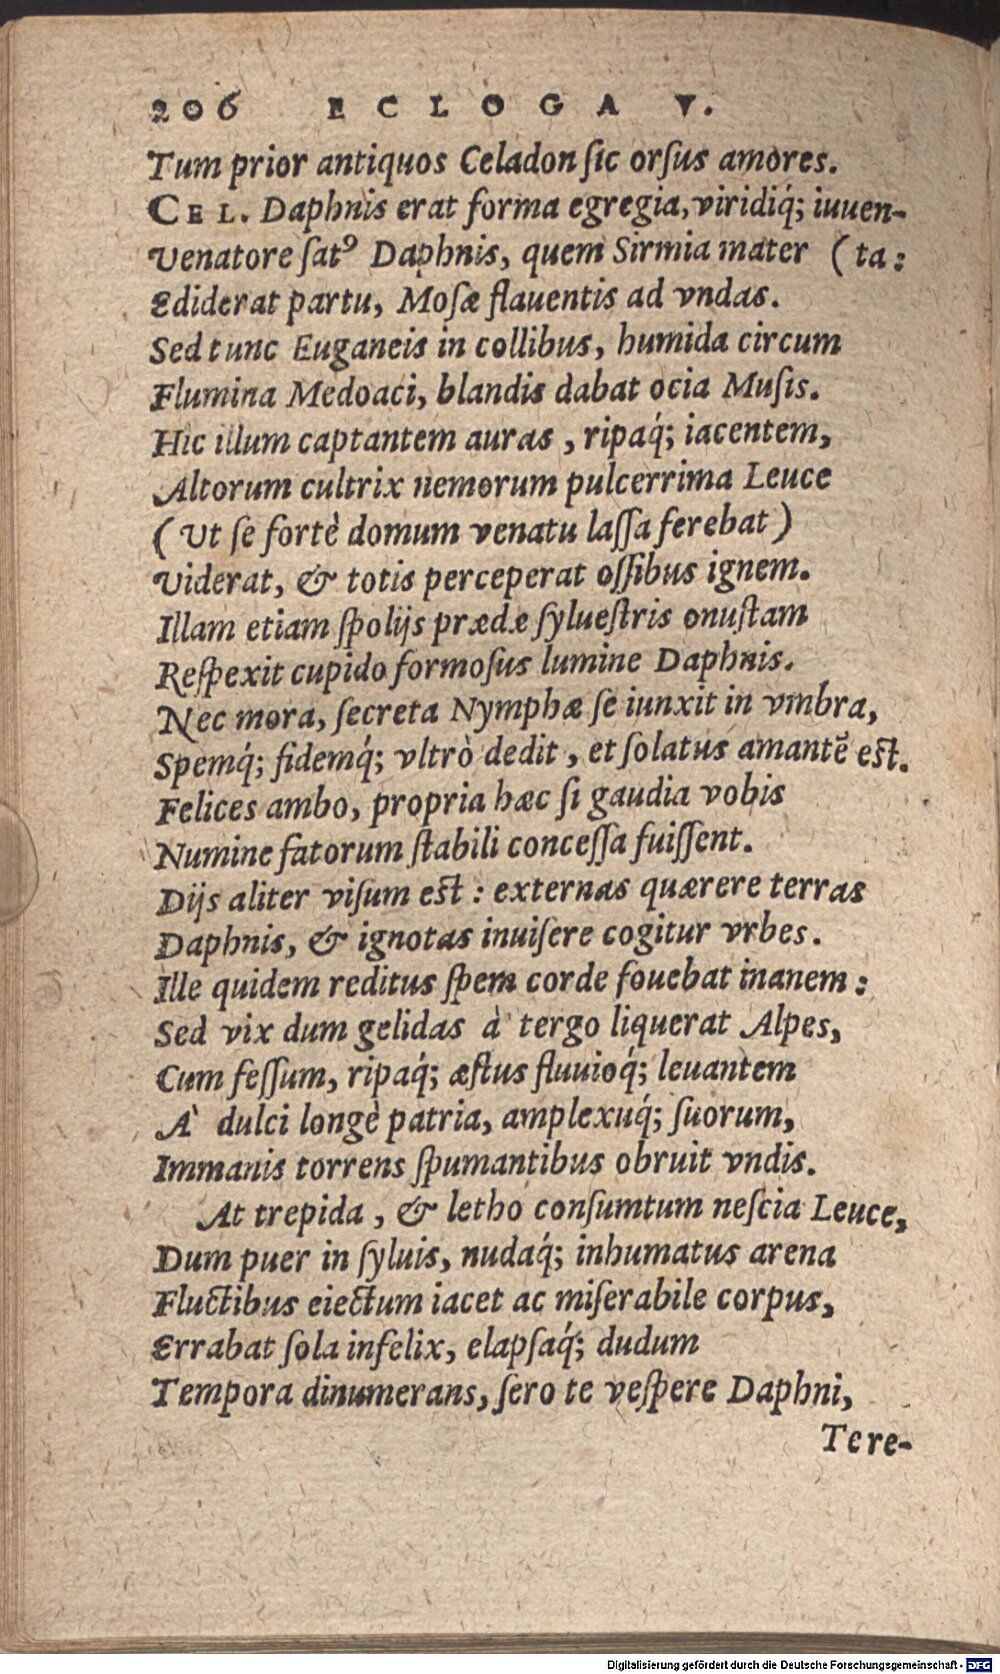 206 ECLOGA V.
Tum prior antiquos Celadon ſic orſus amores.
CEL. Daphnis erat forma egregia, viridiq́; iuuen-
Venatore ſatꝰ Daphnis, quem Sirmia mater (ta:
Ediderat partu, Moſæ flauentis ad vndas.
Sed tunc Euganeis in collibus, humida circum
Flumina Medoaci, blandis dabat ocia Muſis.
Hic illum captantem auras, ripaq́; iacentem,
Altorum cultrix nemorum pulcerrima Leuce
(Vt ſe fortè domum venatu laſſa ferebat)
Viderat, & totis perceperat oſſibus ignem.
Illam etiam ſpolijs prædæ ſylueſtris onuſtam
Reſpexit cupido formoſus lumine Daphnis.
Nec mora, ſecreta Nymphæ ſe iunxit in vmbra,
Spemq́; fidemq́; vltrò dedit, et ſolatus amantẽ eſt.
Felices ambo, propria hæc ſi gaudia vobis
Numine fatorum ſtabili conceſſa fuiſſent.
Dijs aliter viſum eſt: externas quærere terras
Daphnis, & ignotas inuiſere cogitur vrbes.
Ille quidem reditus ſpem corde fouebat inanem:
Sed vix dum gelidas à tergo liquerat Alpes,
Cum feſſum, ripaq́; æſtus fluuioq́; leuantem
À dulci longè patria, amplexuq́; ſuorum,
Immanis torrens ſpumantibus obruit vndis.
At trepida, & letho conſumtum neſcia Leuce,
Dum puer in ſyluis, nudaq́; inhumatus arena
Fluctibus eiectum iacet ac miſerabile corpus,
Errabat ſola infelix, elapſaq́; dudum
Tempora dinumerans, ſero te veſpere Daphni,
Tere-
Digitalisierung gefördert durch die Deutsche Forschungsgemeinschaft - DFG